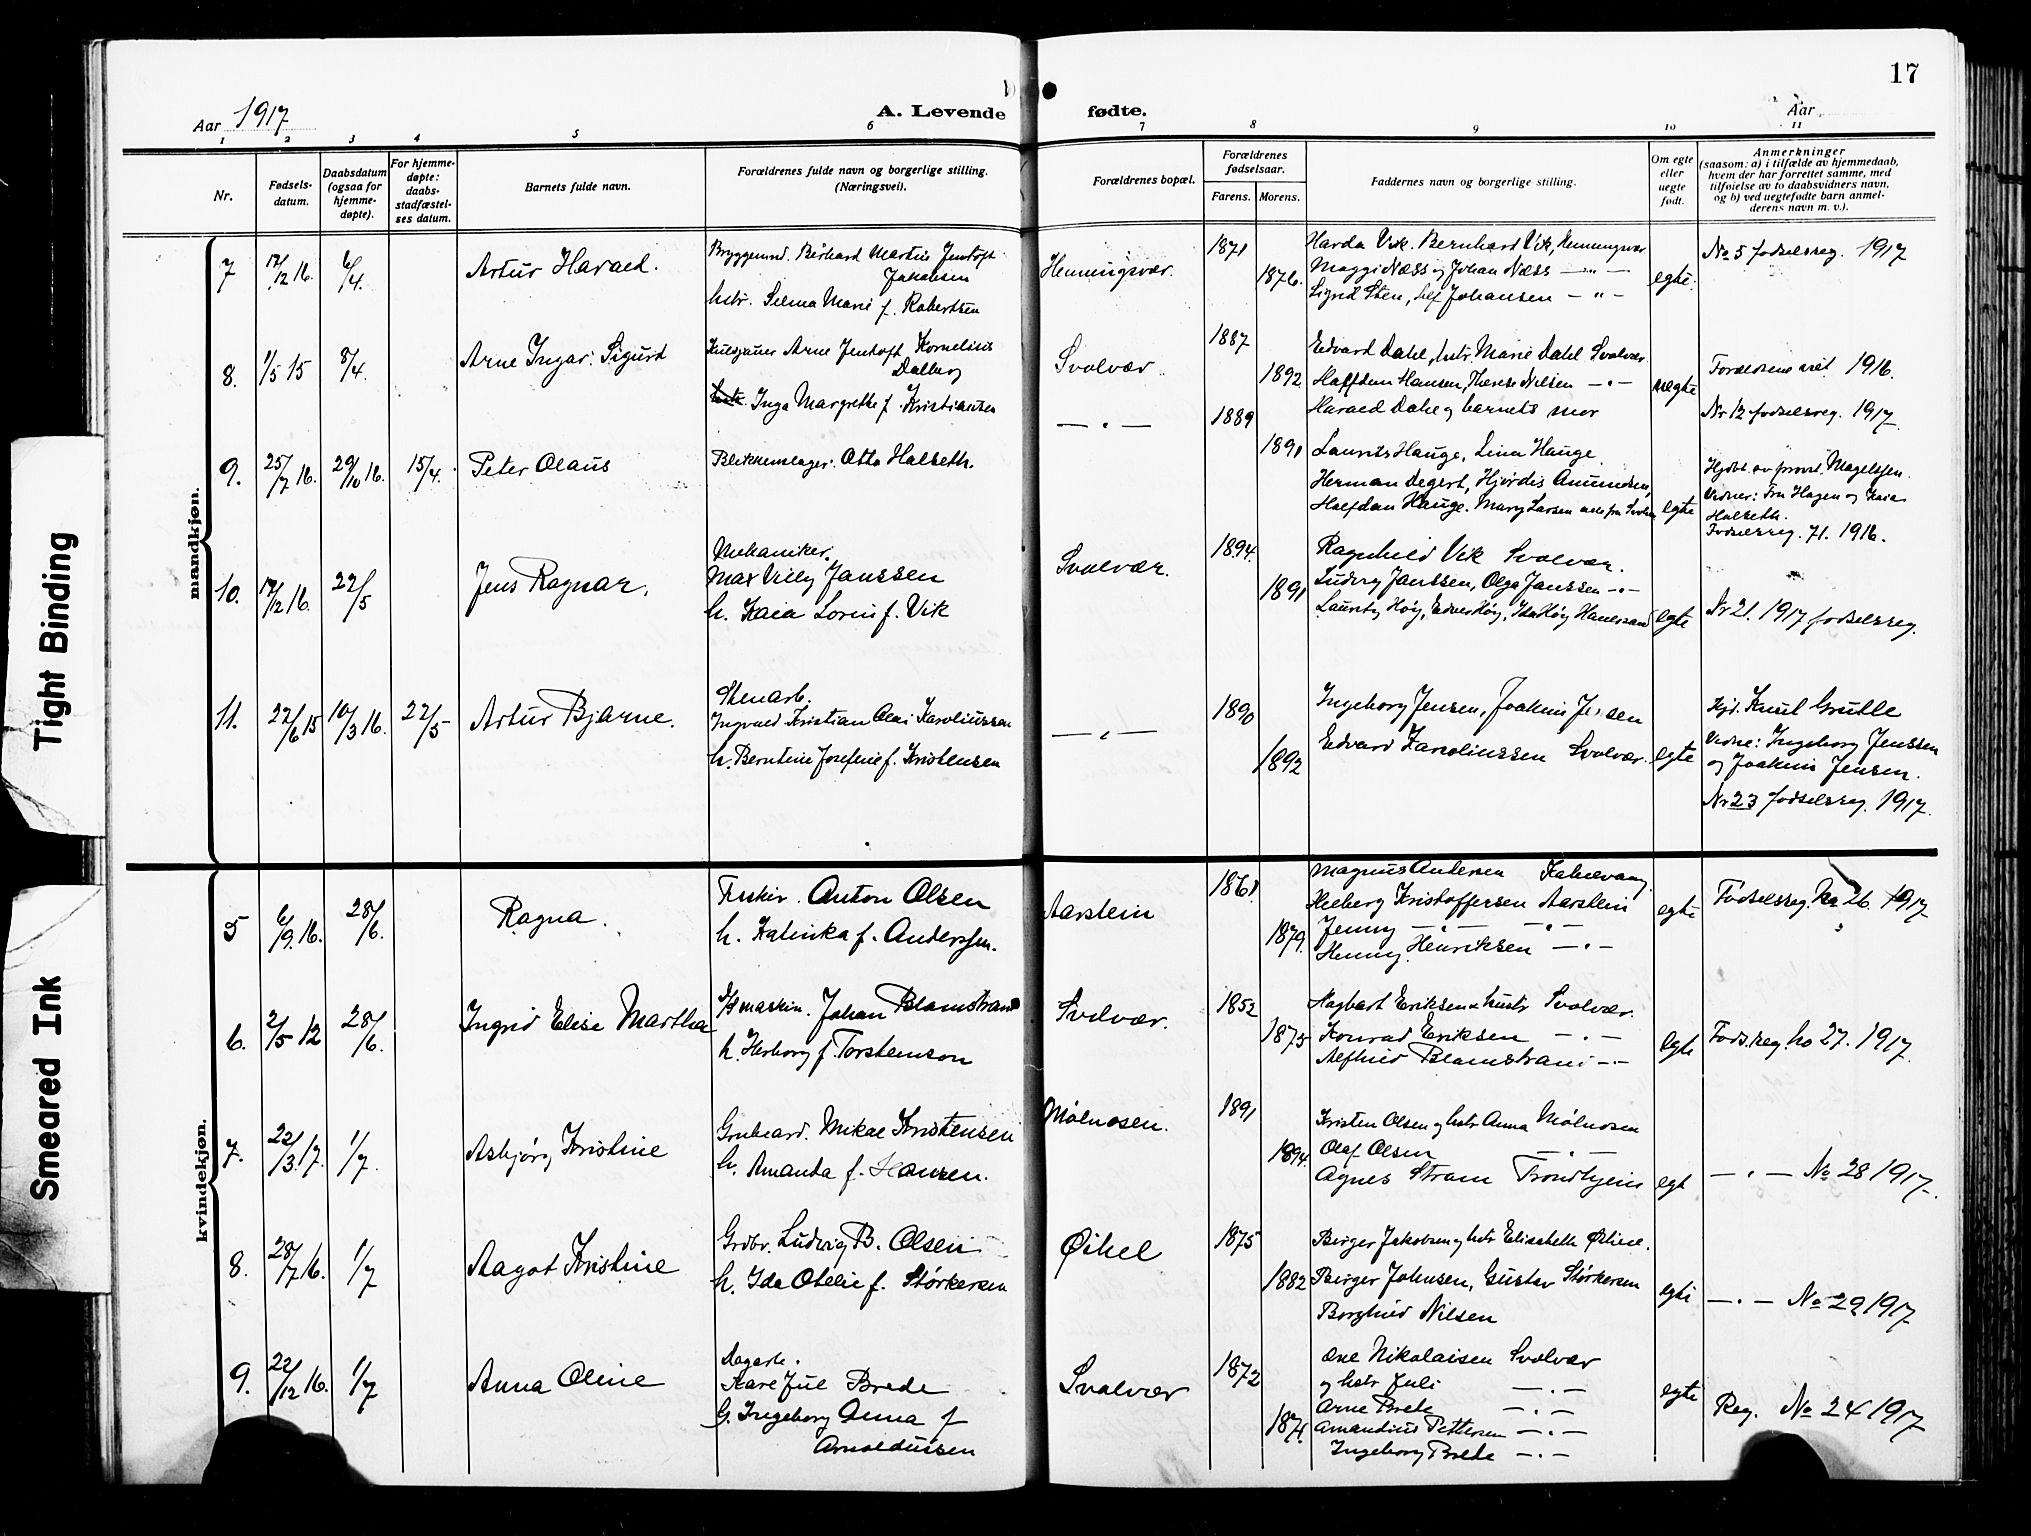 Tight Binding
Smeared Ink
17
Aar 1917
A. Levende fødte.
Aar
1 2 3 4 5 6 7 8 9 10 11
Nr.
Fødsels-
datum.
Daabsdatum
(ogsaa for
hjemme-
døpte).
For hjemme-
døpte:
daabs-
stadfæstel-
ses datum.
Barnets fulde navn.
Forældrenes fulde navn og borgerlige stilling.
(Næringsvei).
Forældrenes bopæl.
Forældrenes
fødselsaar.
Farens. Morens.
Faddernes navn og borgerlige stilling.
Om egte
eller
uegte
født.
Anmerkninger
(saasom: a) i tilfælde av hjemmedaab,
hvem der har forrettet samme, med
tilføielse av to daabsvidners navn,
og b) ved uegtefødte barn anmel-
derens navn m. v.).
mandkjøn.
7 17/12 16. 6/4. Artur Harald.
Martin Jentoft
Jakobsen
hstr. Selma Marie f. Robertsen
Henningsvær. 1871 1876.
Harda Vik. Bernhard Vik, Henningsvær
Maggi Næss og Johan Næss — " —
Sigrid Sten, Johansen — " —
egte.
No 5 fødselsreg. 1917
8. 1/5 15 8/4. Arne Ingar Sigurd
Arne Jentoft Kornelius
Dalberg
Inga Margrethe f. Kristiansen
Svolvær 1887 1892
Edvard Dahl, hstr. Marie Dahl Svolvær
Halfdan Hansen, Therese Nilsen — " —
Harald Dahl og barnets mor
uegte
Forældrene viet 1916.
Nr 12 fødselsreg. 1917.
9. 25/7 16. 29/10 16. 15/4. Peter Olaus
Blikkenslager. Otto Halseth.
— " — 1889 1891
Laurits Hauge, Lina Hauge
Herman Degert, Hjørdis Amundsen,
Halfdan Hauge. Mary Larsen alle fra Svolvær
egte
Hjdbt av provst Magelssen.
Vidner: Fru Hagen og Kaia
Halseth.
Fødselsreg. 71. 1916.
10. 17/12 16. 27/5 Jens Ragnar.
Mekaniker.
Max Vily Janssen
h. Kaia Lovise f. Vik
Svolvær. 1894. 1891
Ragnhild Vik Svolvær.
Ludvig Janssen, Olga Janssen — " —
egte
Nr 21. 1917 fødselsreg.
11. 22/6 15 10/3 16. 27/5 Artur Bjarne.
Stenarb.
Ingvald Kristian Olai Karoliussen
h. Berntine Josefine f. Kristensen
— " — 1890 1892
Ingeborg Jensen, Joakim Jensen
Edvard Karoliussen Svolvær.
egte
Hjd. Knut Grutle
Vidne: Ingeborg Jenssen
og Joakim Jensen.
Nr 23 fødselsreg. 1917.
kvindekjøn.
5 6/9. 16. 28/6. Ragna.
Fisker. Anton Olsen
h. Kalinka f. Anderssen.
Aarstein 1861. 1879.
Magnus Andersen Kalvevaag
Heiberg Kristoffersen Aarstein
Jenny — " — — " —
Henny Henriksen — " —
egte
Fødselsreg. No 26. 1917
6. 2/5 12 28/6. Ingrid Elise Martha
Johan Blomstrand
h. Herborg f. Torstenson
Svolvær. 1852 1875
Hagbart Eriksen & hustr Svolvær.
Konrad Eriksen — " —
Alfhild Blomstrand — " —
egte
Føds.reg. no 27. 1917.
7. 22/3. 17. 1/7. Asbjørg Kristine
Grubearb. Mikal Kristensen
h. Amanda f. Hansen.
Mølnosen. 1891 1894.
Kristen Olsen og hstr Anna Mølnosen
Olaf Olsen — " —
Agnes Strøm Trondhjem
egt
— " — No 28 1917.
8. 28/7 16. 1/7 Aagot Kristine
Grdbr. Ludvig B. Olsen
h. Ida Otelie f. Størkersen
Øihel 1875 1882
Birger Jakobsen og hstr Elisabeth
Birger Johnsen, Gustav Størkersen
Borghild Nilsen
egte
— " — No 29. 1917
9. 22/12 16. 1/7 Anna Oline
Dagarb.
Kare Jul Brede
G. Ingeborg Anna f.
Arnoldussen
Svolvær 1872 1874.
Ole Nikolaisen Svolvær
og hstr Juli — " —
Arne Brede — " —
Amandius Pettersen — " —
Ingeborg Brede — " —
egte
Reg. No 24 1917